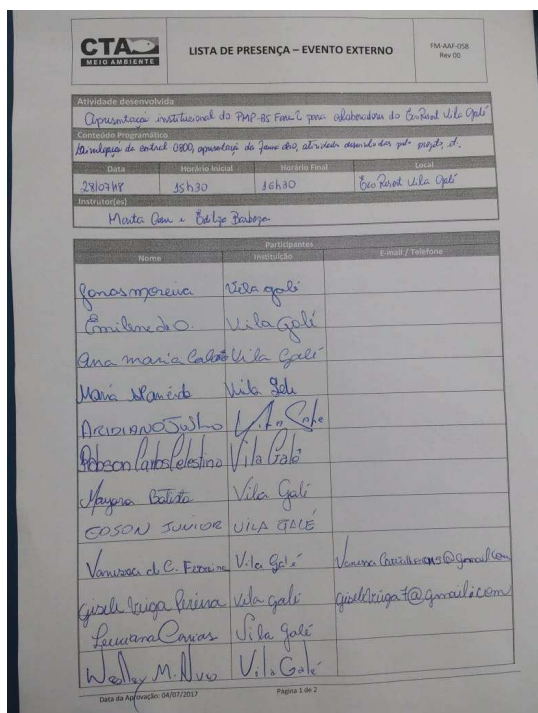 CTA
MEIO AMBIENTE
LISTA DE PRESENÇA – EVENTO EXTERNO
FM-AAF-058
Rev 00
Atividade desenvolvida
Apresentação institucional do PMP-BS Fase 2 para colaboradores do Eco Resort Vila Galé
Conteúdo Programático
Divulgação da central 0800, apresentação da fauna alvo, atividades desenvolvidas pelo projeto, et.
Data Horário Inicial Horário Final Local
28/07/18 15h30 16h30 Eco Resort Vila Galé
Instrutor(es)
Marta e Barboza
Participantes
Nome Instituição E-mail / Telefone
Jonas moreira Vila galé
Emilene d O. Vila Galé
Ana maria Vila Galé
Maria Vila Galé
ARIDIANO
Robson Carlos Celestino Vila Galé
Mayara Batista Vila Galé
EDSON JUNIOR VILA GALÉ
Vanessa d C. Ferreira Vila Galé
Gisele Veiga Pereira Vila galé giseleveiga7@gmail.com
Luciana Vila Galé
Wesley M. Vila Galé
Data da Aprovação: 04/07/2017 Página 1 de 2